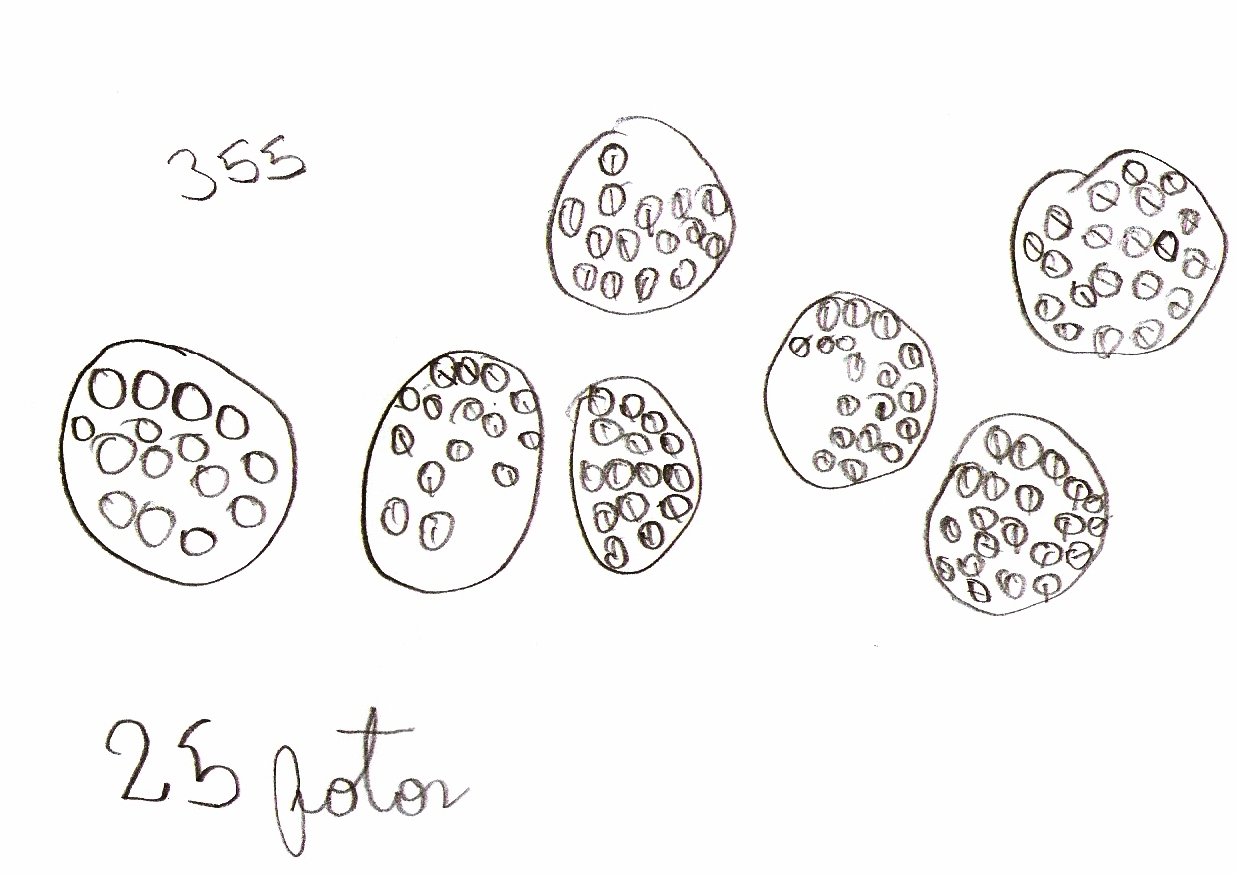 355
25 potos